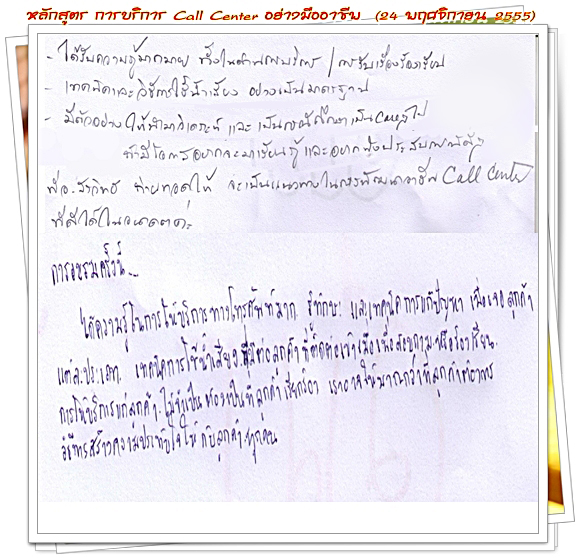 หลักสูตร การบริการ Call Center อย่างมืออาชีพ (24 พฤศจิกายน 2555)
- ได้รับความรู้มากมาย ทั้งในด้านการบริการ / การรับเรื่องร้องเรียน
- เทคนิคและวิธีการใช้น้ำเสียง อย่างเป็นมาตรฐาน
- มีตัวอย่างให้นำมาวิเคราะห์ และเป็นกรณีศึกษา
ถ้ามีโอกาสอยากจะมาเรียนรู้ และอยากฟังประสบการณ์
ที่อ. ถ่ายทอดให้ จะเป็นแนวทางในการพัฒนาอาชีพ Call Center
ที่ดีได้ในอนาคตค่ะ
การอบรมครั้งนี้
ได้ความรู้ในการให้บริการทางโทรศัพท์มาก รู้ทักษะ และเทคนิคการแก้ปัญหา เมื่อเจอลูกค้า
แต่ละประเภท เทคนิคการใช้น้ำเสียง ที่มีต่อลูกค้าที่ติดต่อเข้ามาเพื่อสอบถามหรือร้องเรียน
การให้บริการแก่ลูกค้า ไม่จำเป็นต้องเป็นที่ลูกค้าเรียกร้อง เราอาจให้มากกว่าที่ลูกค้าต้องการ
วิธีการสร้างความประทับใจให้กับลูกค้าทุกคน